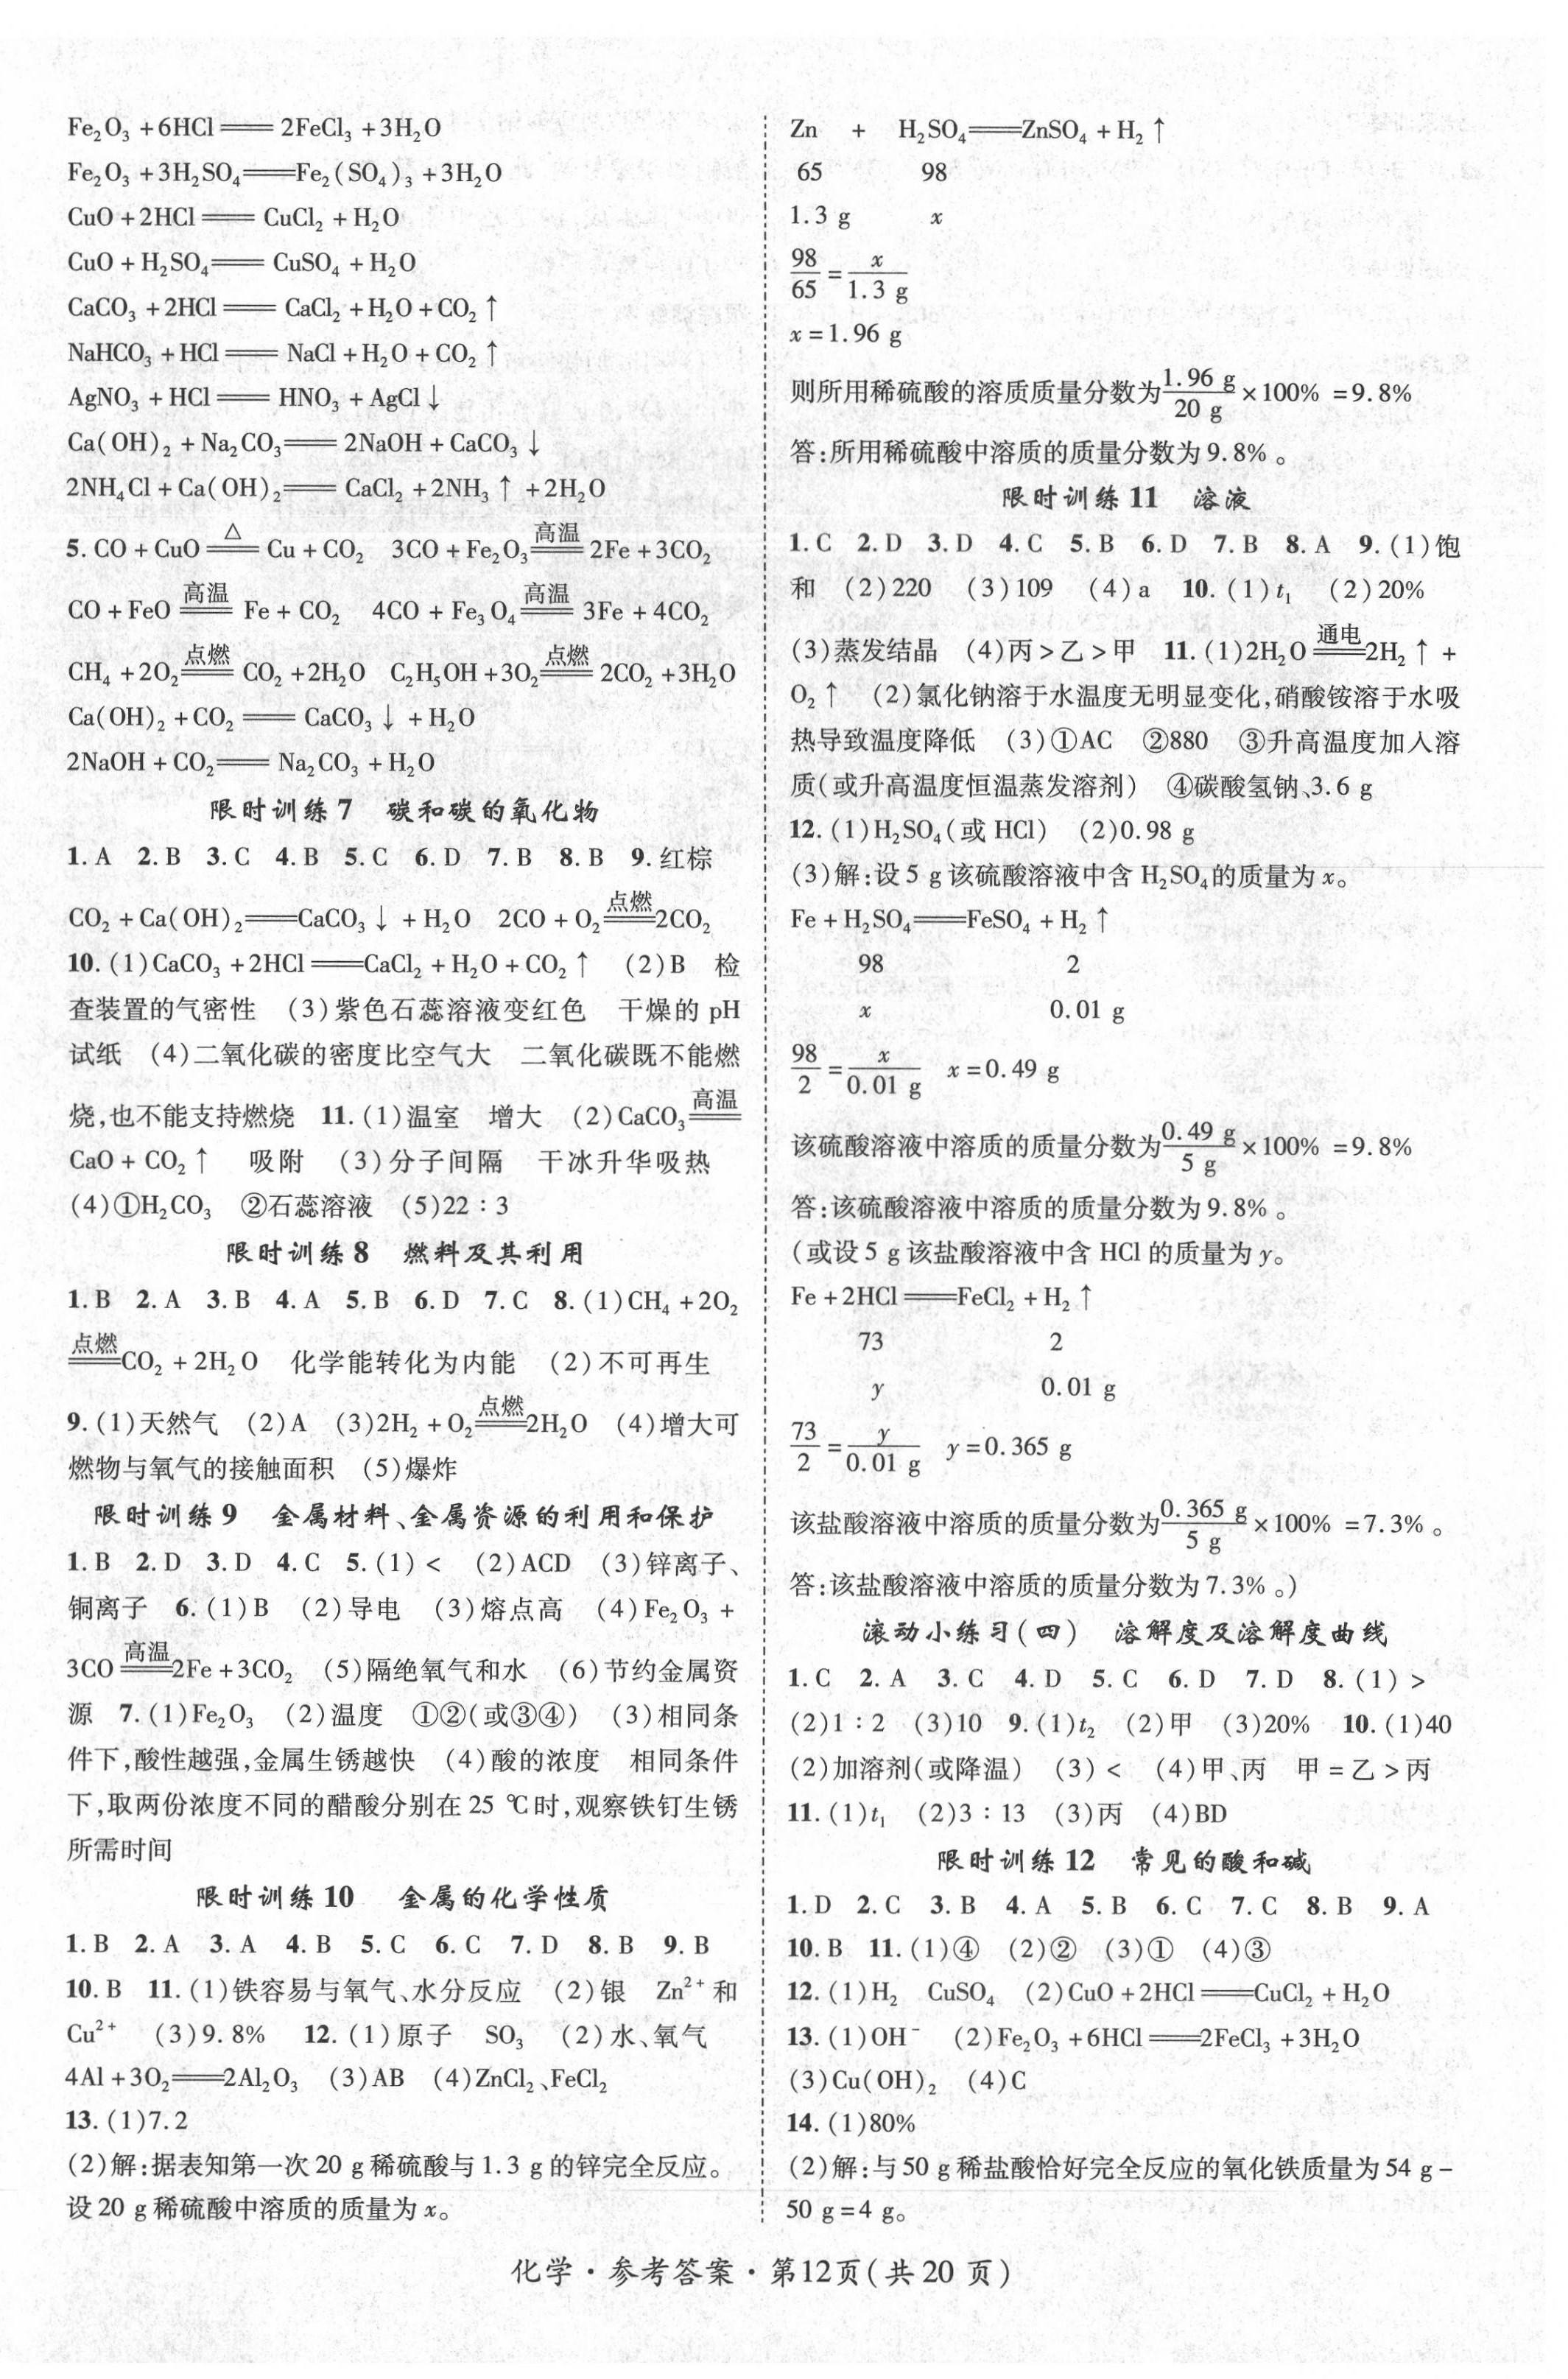 Fe₂O₃ +6HCl══2FeCl₃ +3H₂O
Fe₂O₃ +3H₂SO₄══Fe₂(SO₄)₃ +3H₂O
CuO +2HCl══CuCl₂ +H₂O
CuO + H₂SO₄══CuSO₄ + H₂O
CaCO₃ +2HCl══CaCl₂ +H₂O+CO₂↑
NaHCO₃ +HCl══NaCl +H₂O + CO₂↑
AgNO₃ +HCl══HNO₃ + AgCl↓
Ca(OH)₂ + Na₂CO₃══2NaOH + CaCO₃↓
2NH₄Cl + Ca(OH)₂══CaCl₂ +2NH₃↑ +2H₂O
5. CO + CuO═△═Cu + CO₂ 3CO + Fe₂O₃═高温═2Fe +3CO₂
CO + FeO═高温═Fe + CO₂ 4CO + Fe₃O₄═高温═3Fe +4CO₂
CH₄ +2O₂═点燃═CO₂ +2H₂O C₂H₅OH +3O₂═点燃═2CO₂ +3H₂O
Ca(OH)₂ +CO₂══CaCO₃↓ + H₂O
2NaOH + CO₂══Na₂CO₃ +H₂O
限时训练7 碳和碳的氧化物
1. A 2. B 3. C 4. B 5. C 6. D 7. B 8. B 9. 红棕
CO₂ + Ca(OH)₂══CaCO₃↓ + H₂O 2CO + O₂═点燃═2CO₂
10. (1)CaCO₃ +2HCl══CaCl₂ +H₂O + CO₂↑ (2)B 检
查装置的气密性 (3)紫色石蕊溶液变红色 干燥的 pH
试纸 (4)二氧化碳的密度比空气大 二氧化碳既不能燃
烧,也不能支持燃烧 11. (1)温室 增大 (2)CaCO₃═高温═
CaO + CO₂↑ 吸附 (3)分子间隔 干冰升华吸热
(4)①H₂CO₃ ②石蕊溶液 (5)22∶3
限时训练8 燃料及其利用
1. B 2. A 3. B 4. A 5. B 6. D 7. C 8. (1)CH₄ +2O₂
═点燃═CO₂ +2H₂O 化学能转化为内能 (2)不可再生
9. (1)天然气 (2)A (3)2H₂ + O₂═点燃═2H₂O (4)增大可
燃物与氧气的接触面积 (5)爆炸
限时训练9 金属材料、金属资源的利用和保护
1. B 2. D 3. D 4. C 5. (1) < (2)ACD (3)锌离子、
铜离子 6. (1)B (2)导电 (3)熔点高 (4)Fe₂O₃ +
3CO═高温═2Fe +3CO₂ (5)隔绝氧气和水 (6)节约金属资
源 7. (1)Fe₂O₃ (2)温度 ①②(或③④) (3)相同条
件下,酸性越强,金属生锈越快 (4)酸的浓度 相同条件
下,取两份浓度不同的醋酸分别在 25 ℃时,观察铁钉生锈
所需时间
限时训练10 金属的化学性质
1. B 2. A 3. A 4. B 5. C 6. C 7. D 8. B 9. B
10. B 11. (1)铁容易与氧气、水分反应 (2)银 Zn²⁺ 和
Cu²⁺ (3)9. 8% 12. (1)原子 SO₃ (2)水、氧气
4Al +3O₂══2Al₂O₃ (3)AB (4)ZnCl₂、FeCl₂
13. (1)7. 2
(2)解:据表知第一次 20 g 稀硫酸与 1. 3 g 的锌完全反应。
设 20 g 稀硫酸中溶质的质量为 x。
Zn + H₂SO₄══ZnSO₄ + H₂↑
65 98
1. 3 g x
98/65 = x/1. 3 g
x =1. 96 g
则所用稀硫酸的溶质质量分数为 1. 96 g/20 g ×100% =9. 8%
答:所用稀硫酸中溶质的质量分数为 9. 8% 。
限时训练11 溶液
1. C 2. D 3. D 4. C 5. B 6. D 7. B 8. A 9. (1)饱
和 (2)220 (3)109 (4)a 10. (1)t₁ (2)20%
(3)蒸发结晶 (4)丙 >乙 >甲 11. (1)2H₂O═通电═2H₂↑ +
O₂↑ (2)氯化钠溶于水温度无明显变化,硝酸铵溶于水吸
热导致温度降低 (3)①AC ②880 ③升高温度加入溶
质(或升高温度恒温蒸发溶剂) ④碳酸氢钠、3. 6 g
12. (1)H₂SO₄(或 HCl) (2)0. 98 g
(3)解:设 5 g 该硫酸溶液中含 H₂SO₄的质量为 x。
Fe + H₂SO₄══FeSO₄ + H₂↑
98 2
x 0. 01 g
98/2 = x/0. 01 g x =0. 49 g
该硫酸溶液中溶质的质量分数为 0. 49 g/5 g ×100% =9. 8%
答:该硫酸溶液中溶质的质量分数为 9. 8% 。
(或设 5 g 该盐酸溶液中含 HCl 的质量为 y。
Fe +2HCl══FeCl₂ + H₂↑
73 2
y 0. 01 g
73/2 = y/0. 01 g y =0. 365 g
该盐酸溶液中溶质的质量分数为 0. 365 g/5 g ×100% =7. 3% 。
答:该盐酸溶液中溶质的质量分数为 7. 3% 。)
滚动小练习(四) 溶解度及溶解度曲线
1. C 2. A 3. C 4. D 5. C 6. D 7. D 8. (1) >
(2)1∶2 (3)10 9. (1)t₂ (2)甲 (3)20% 10. (1)40
(2)加溶剂(或降温) (3) < (4)甲、丙 甲 = 乙 > 丙
11. (1)t₁ (2)3∶13 (3)丙 (4)BD
限时训练12 常见的酸和碱
1. D 2. C 3. B 4. A 5. B 6. C 7. C 8. B 9. A
10. B 11. (1)④ (2)② (3)① (4)③
12. (1)H₂ CuSO₄ (2)CuO +2HCl══CuCl₂ + H₂O
13. (1)OH⁻ (2)Fe₂O₃ +6HCl══2FeCl₃ +3H₂O
(3)Cu(OH)₂ (4)C
14. (1)80%
(2)解:与 50 g 稀盐酸恰好完全反应的氧化铁质量为 54 g -
50 g =4 g。
化学·参考答案·第12页(共 20 页)